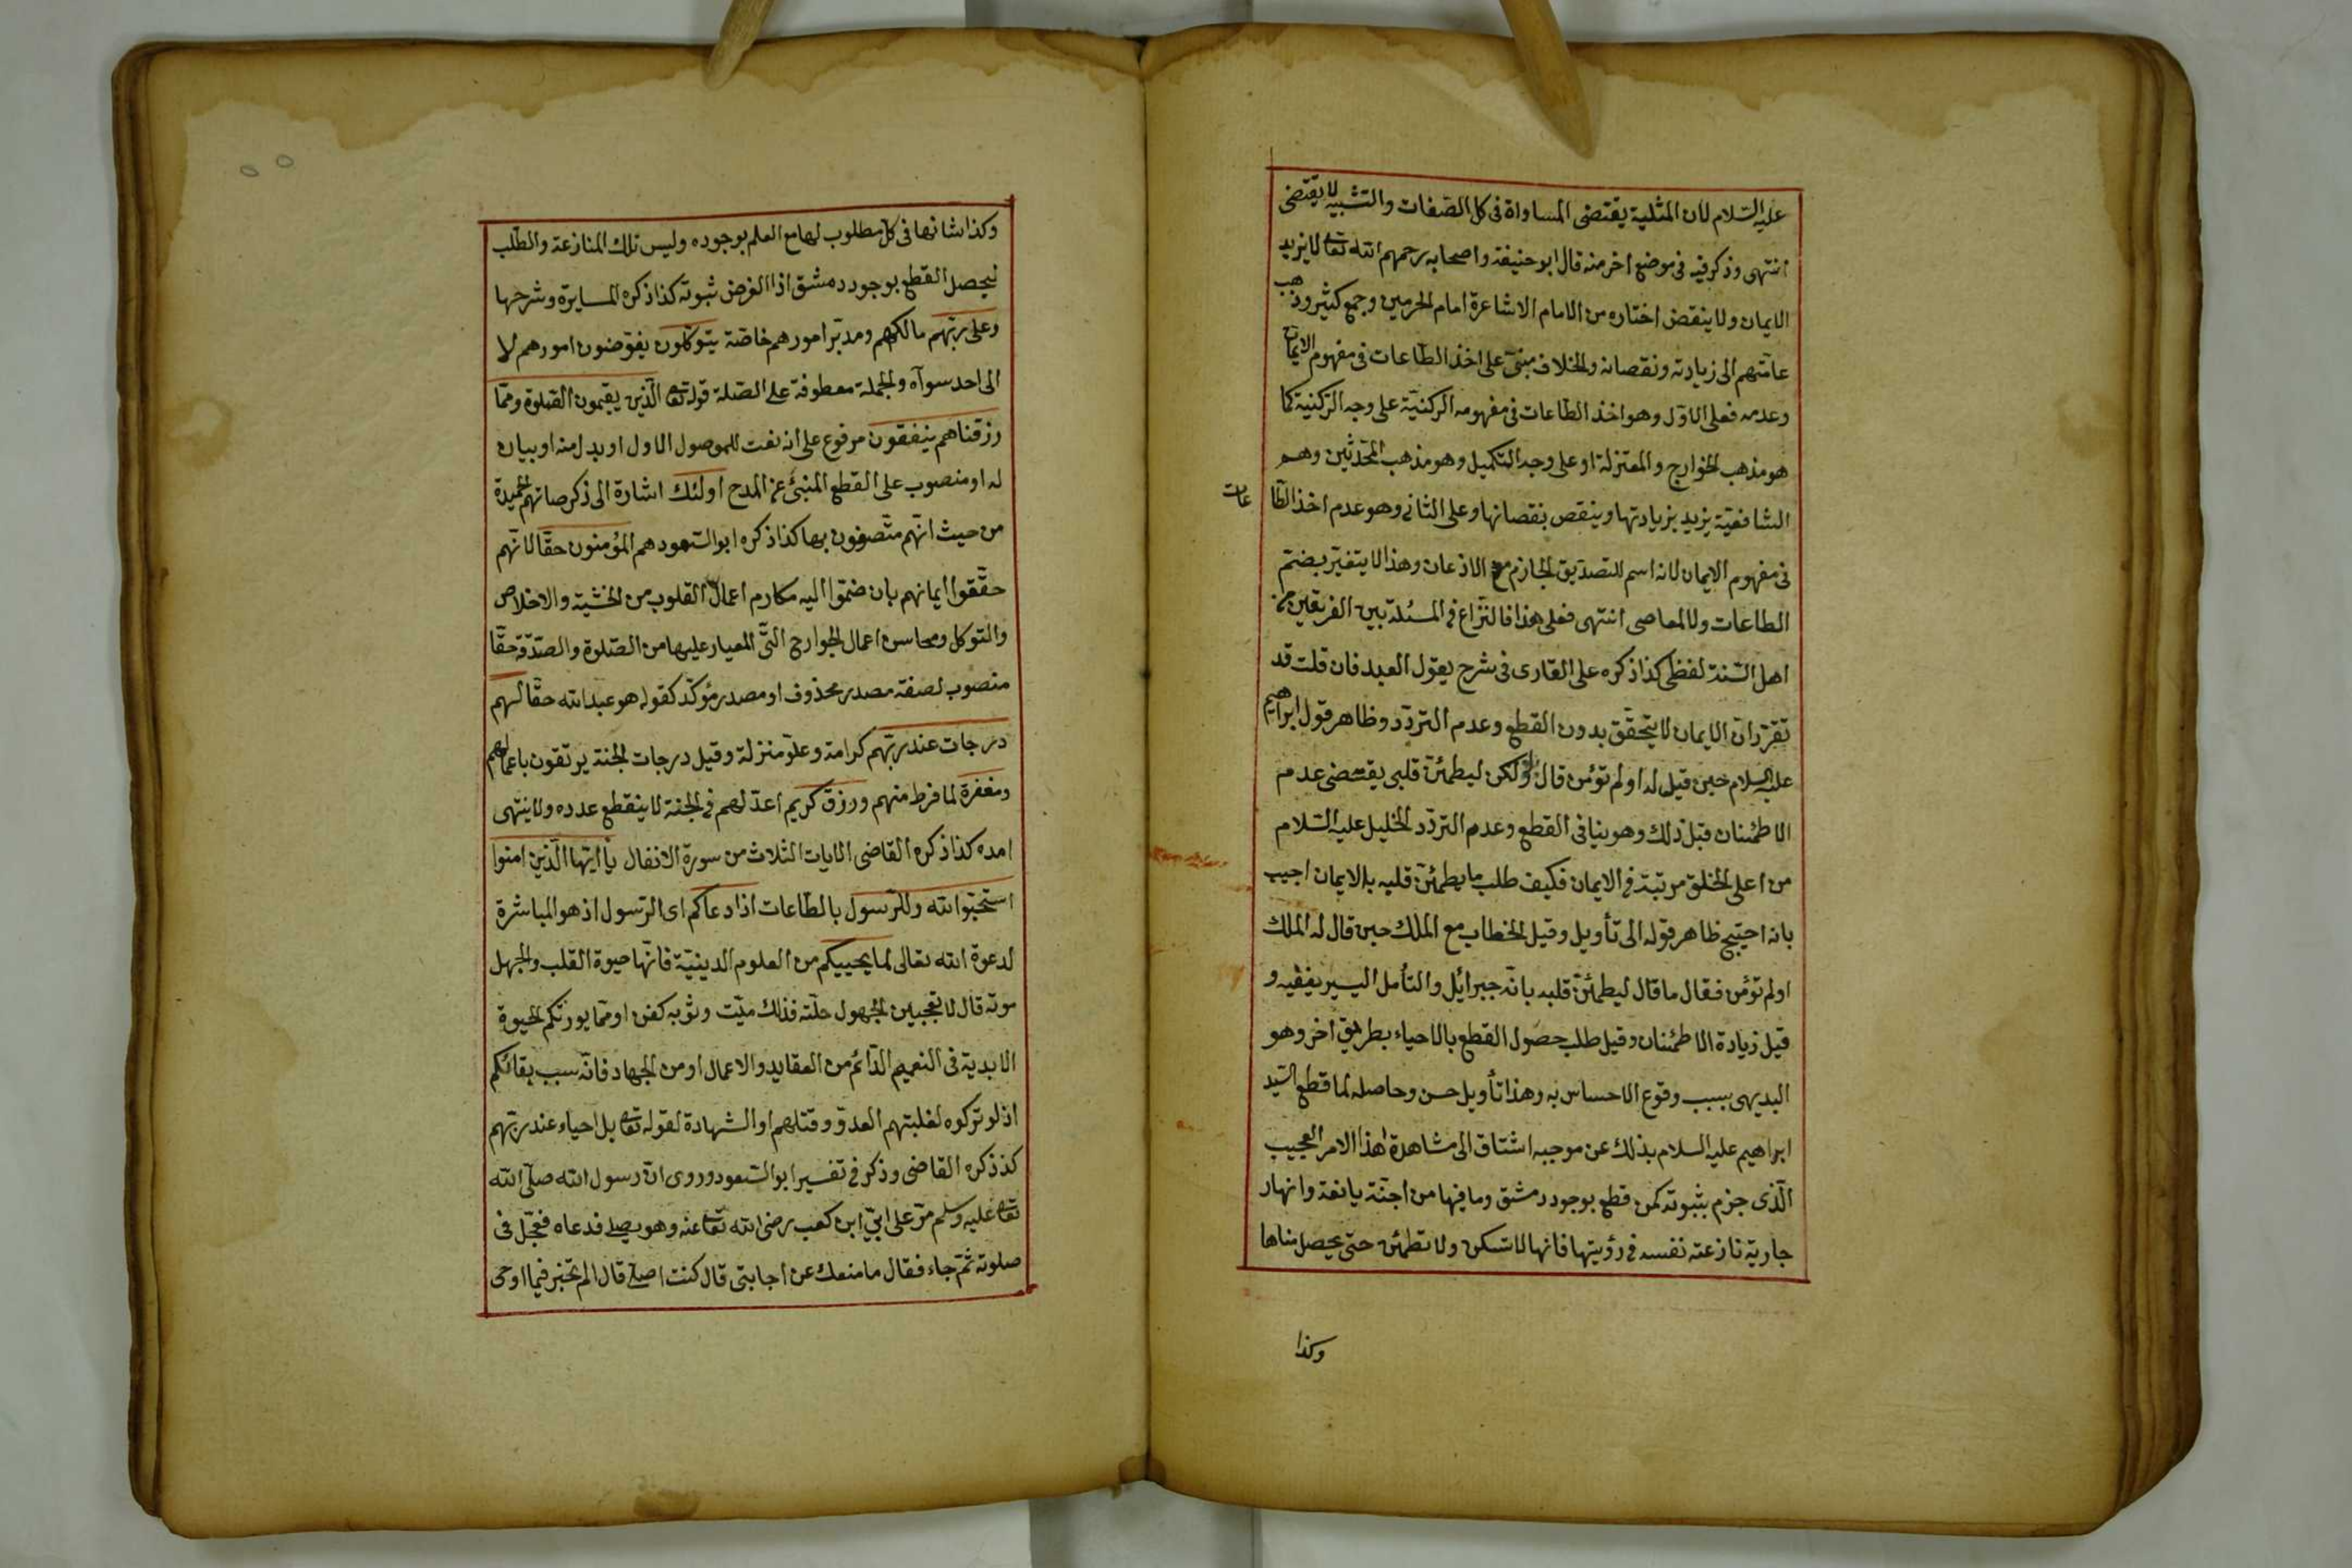 عليه السلام لان المثلية يقتضى المساواة فى كل الصفات والتشبيه لا يقتضى
انتهى وذكر فيه فى موضع اخر منه قال ابو حنيفة واصحابه رحمهم الله تعا لا يزيد
الايمان ولا ينقص اختاره من الامام الاشاعرة امام الحرمين وجمع كثير وذهب
عامتهم الى زيادته ونقصانه والخلاف مبنى على اخذ الطاعات فى مفهوم الايمان
وعدمه فعلى الاول وهو اخذ الطاعات فى مفهومه الركنية على وجه الركنية كما
هو مذهب الخوارج والمعتزلة او على وجه التكميل وهو مذهب المحدثين وهم
الشافعية يزيد بزيادتها وينقص بنقصانها وعلى الثانى وهو عدم اخذ الطا
عات
فى مفهوم الايمان لانه اسم للتصديق الجازم مع الاذعان وهذا لا يتغير بضم
الطاعات ولا المعاصى انتهى فعلى هذا فالنزاع فى المسئلة بين الفريقين من
اهل السنة لفظى كذا ذكره على القارى فى شرح يقول العبد فان قلت قد
تقرر ان الايمان لا يتحقق بدون القطع وعدم التردد وظاهر قول ابراهيم
عليه السلام حين قيل له اولم تؤمن قال بلى ولكن ليطمئن قلبى يقتضى عدم
الاطمئنان قبل ذلك وهو ينافى القطع وعدم التردد الخليل عليه السلام
من اعلى الخلق مرتبة فى الايمان فكيف طلب ما يطمئن قلبه بالايمان اجيب
بانه احتيج ظاهر قوله الى تأويل وقيل الخطاب مع الملك حين قال له الملك
اولم تؤمن فقال ما قال ليطمئن قلبه بانه جبرائيل والتأمل اليسير ينفيه و
قيل زيادة الاطمئنان وقيل طلب حصول القطع بالاحياء بطريق اخر وهو
البديهى بسبب وقوع الاحساس به وهذا تأويل حسن وحاصله لما قطع السيد
ابراهيم عليه السلام بذلك عن موجبه اشتاق الى مشاهدة هذا الامر العجيب
الذى جزم بثبوته كمن قطع بوجود دمشق وما فيها من اجنة يانعة وانهار
جارية نازعته نفسه فى رؤيتها فانها لا تسكن ولا تطمئن حتى يحصل مناها
وكذا
وكذا شانها فى كل مطلوب لها مع العلم بوجوده وليس تلك المنازعة والطلب
ليحصل القطع بوجود دمشق اذا الفرض ثبوته كذا ذكره المسايرة وشرحها
وعلى ربهم مالكهم ومدبر امورهم خاصة يتوكلون يفوضون امورهم لا
الى احد سواه والجملة معطوفة على الصلة قوله تعا الذين يقيمون الصلوة ومما
رزقناهم ينفقون مرفوع على انه نعت للموصول الاول او بدل منه او بيان
له او منصوب على القطع المنبئ عن المدح اولئك اشارة الى ذكر صفاتهم الحميدة
من حيث انهم متصفون بها كذا ذكره ابو السعود هم المؤمنون حقا لانهم
حققوا ايمانهم بان ضموا اليه مكارم اعمال القلوب من الخشية والاخلاص
والتوكل ومحاسن اعمال الجوارح التى المعيار عليها من الصلوة والصدقة حقا
منصوب لصفة مصدر محذوف او مصدر مؤكد كقوله هو عبد الله حقا لهم
درجات عند ربهم كرامة وعلو منزلة وقيل درجات الجنة يرتقون باعمالهم
ومغفرة لما فرط منهم ورزق كريم اعد لهم فى الجنة لا ينقطع عدده ولا ينتهى
امده كذا ذكره القاضى الايات الثلاث من سورة الانفال يا ايها الذين امنوا
استجيبوا لله وللرسول بالطاعات اذا دعاكم اى الرسول اذ هو المباشرة
لدعوة الله تعالى لما يحييكم من العلوم الدينية فانها حيوة القلب والجهل
موته قال لا تعجبين الجهول حلته فذلك ميت وثوبه كفن او مما يورثكم الحيوة
الابدية فى النعيم الدائم من العقايد والاعمال او من الجهاد فانه سبب بقائكم
اذ لو تركوه لغلبتهم العدو وقتلهم او الشهادة لقوله تعا بل احياء عند ربهم
كذ ذكره القاضى وذكر فى تفسير ابو السعود وروى ان رسول الله صلى الله
تعا عليه وسلم مر على ابى ابن كعب رضى الله تعا عنه وهو يصلى فدعاه فعجل فى
صلوته ثم جاء فقال ما منعك عن اجابتى قال كنت اصلى قال الم تخبر فيما اوحى